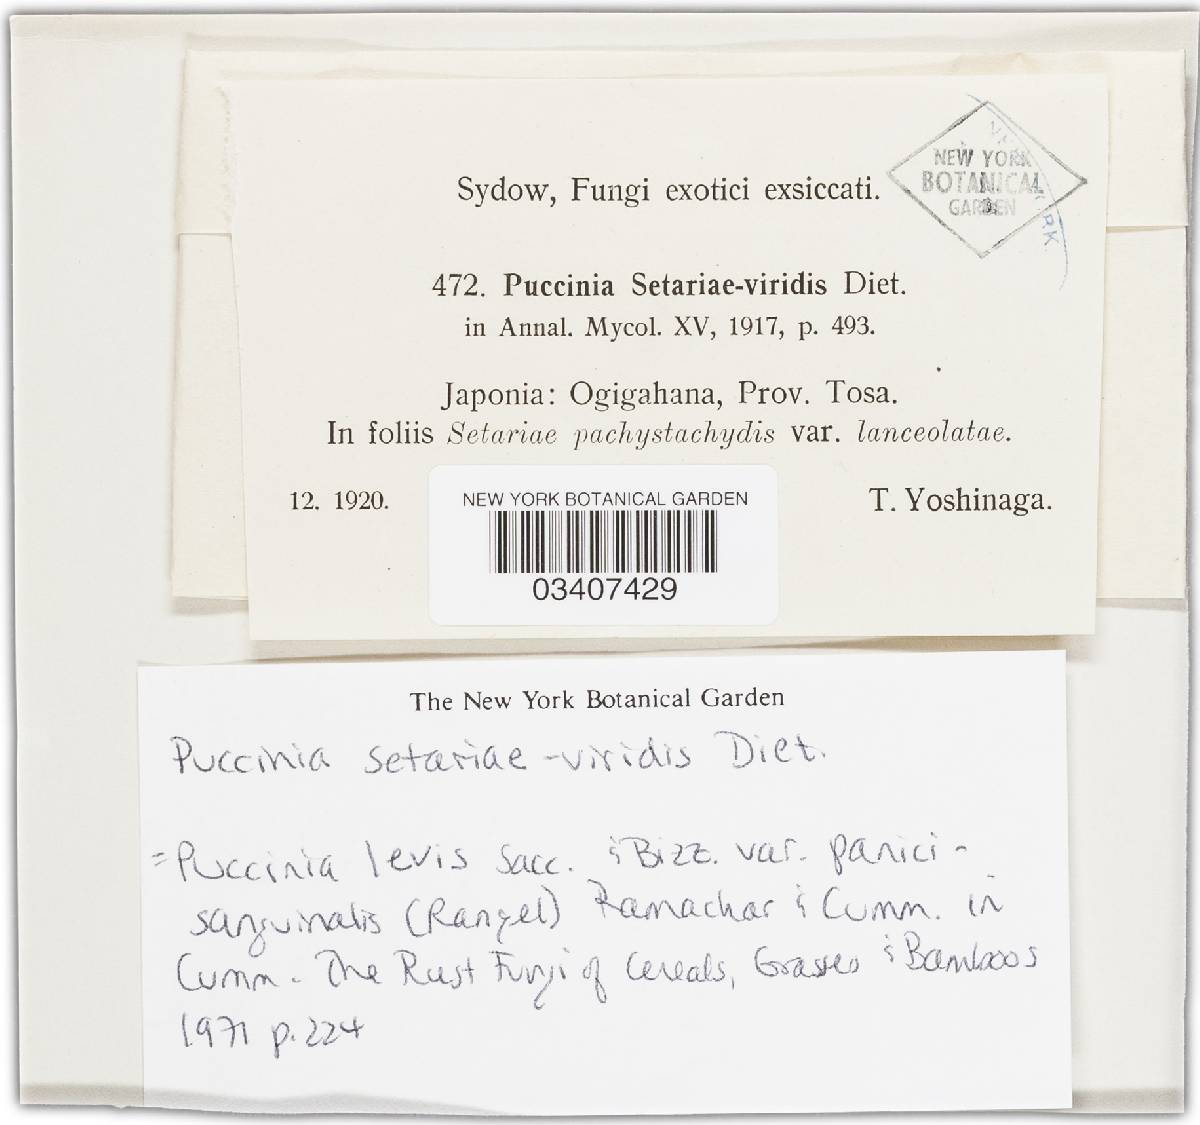 Sydow, Fungi exotici exsiccati.
NEW YORK
BOTANICAL
GARDEN
472. Puccinia Setariae-viridis Diet.
in Annal. Mycol. XV, 1917, p. 493.
Japonia: Ogigahana, Prov. Tosa.
In foliis Setariae pachystachydis var. lanceolatae.
12. 1920.
T. Yoshinaga.
NEW YORK BOTANICAL GARDEN
03407429
The New York Botanical Garden
Puccinia setariae-viridis Diet.
=Puccinia levis Sacc. & Bizz. var. panici-
sanguinalis (Rangel) Ramachar & Cumm. in
Cumm. The Rust Fungi of Cereals, Grasses & Bamboos
1971 p. 224